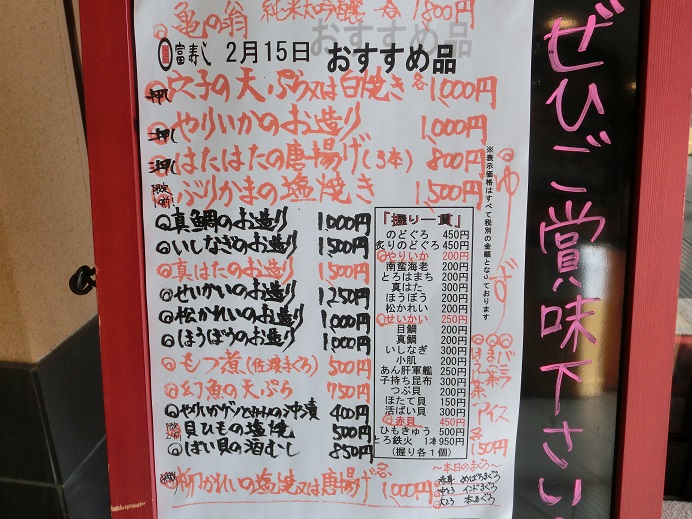 亀の翁 純米大吟醸 一合 1800円
富寿し 2月15日 おすすめ品
穴子の天ぷら又は白焼き 各 1,000円
やりいかのお造り 1,000円
はたはたの唐揚げ(3本) 800円
ぶりかまの塩焼き 1,500円
真鯛のお造り 1,000円
いしなぎのお造り 1,500円
真はたのお造り 1,500円
せいかいのお造り 1,250円
松かれいのお造り 1,000円
ほうぼうのお造り 1,000円
もつ煮(佐渡まぐろ) 500円
幻魚の天ぷら 750円
400円
貝ひもの塩焼 500円
ばい貝の酒むし 850円
柳かれいの塩焼又は唐揚げ 各 1,000円
「握り一貫」
のどぐろ 450円
炙りのどぐろ 450円
やりいか 200円
南蛮海老 200円
とろはまち 200円
真はた 300円
ほうぼう 200円
松かれい 200円
せいかい 250円
目鯛 200円
真鯛 200円
いしなぎ 300円
小肌 200円
あん肝軍艦 250円
子持ち昆布 300円
つぶ貝 200円
ほたて貝 150円
活ばい貝 300円
赤貝 450円
ひもきゅう 500円
とろ鉄火 1本 950円
(握り各1個)
※表示価格はすべて税別の金額となっております
ゆず
バニラ
ほうじ茶
アイス
各150円
~本日のまぐろ~
赤身 めばちまぐろ
中とろ インドまぐろ
大とろ 本まぐろ
ぜひご賞味下さい